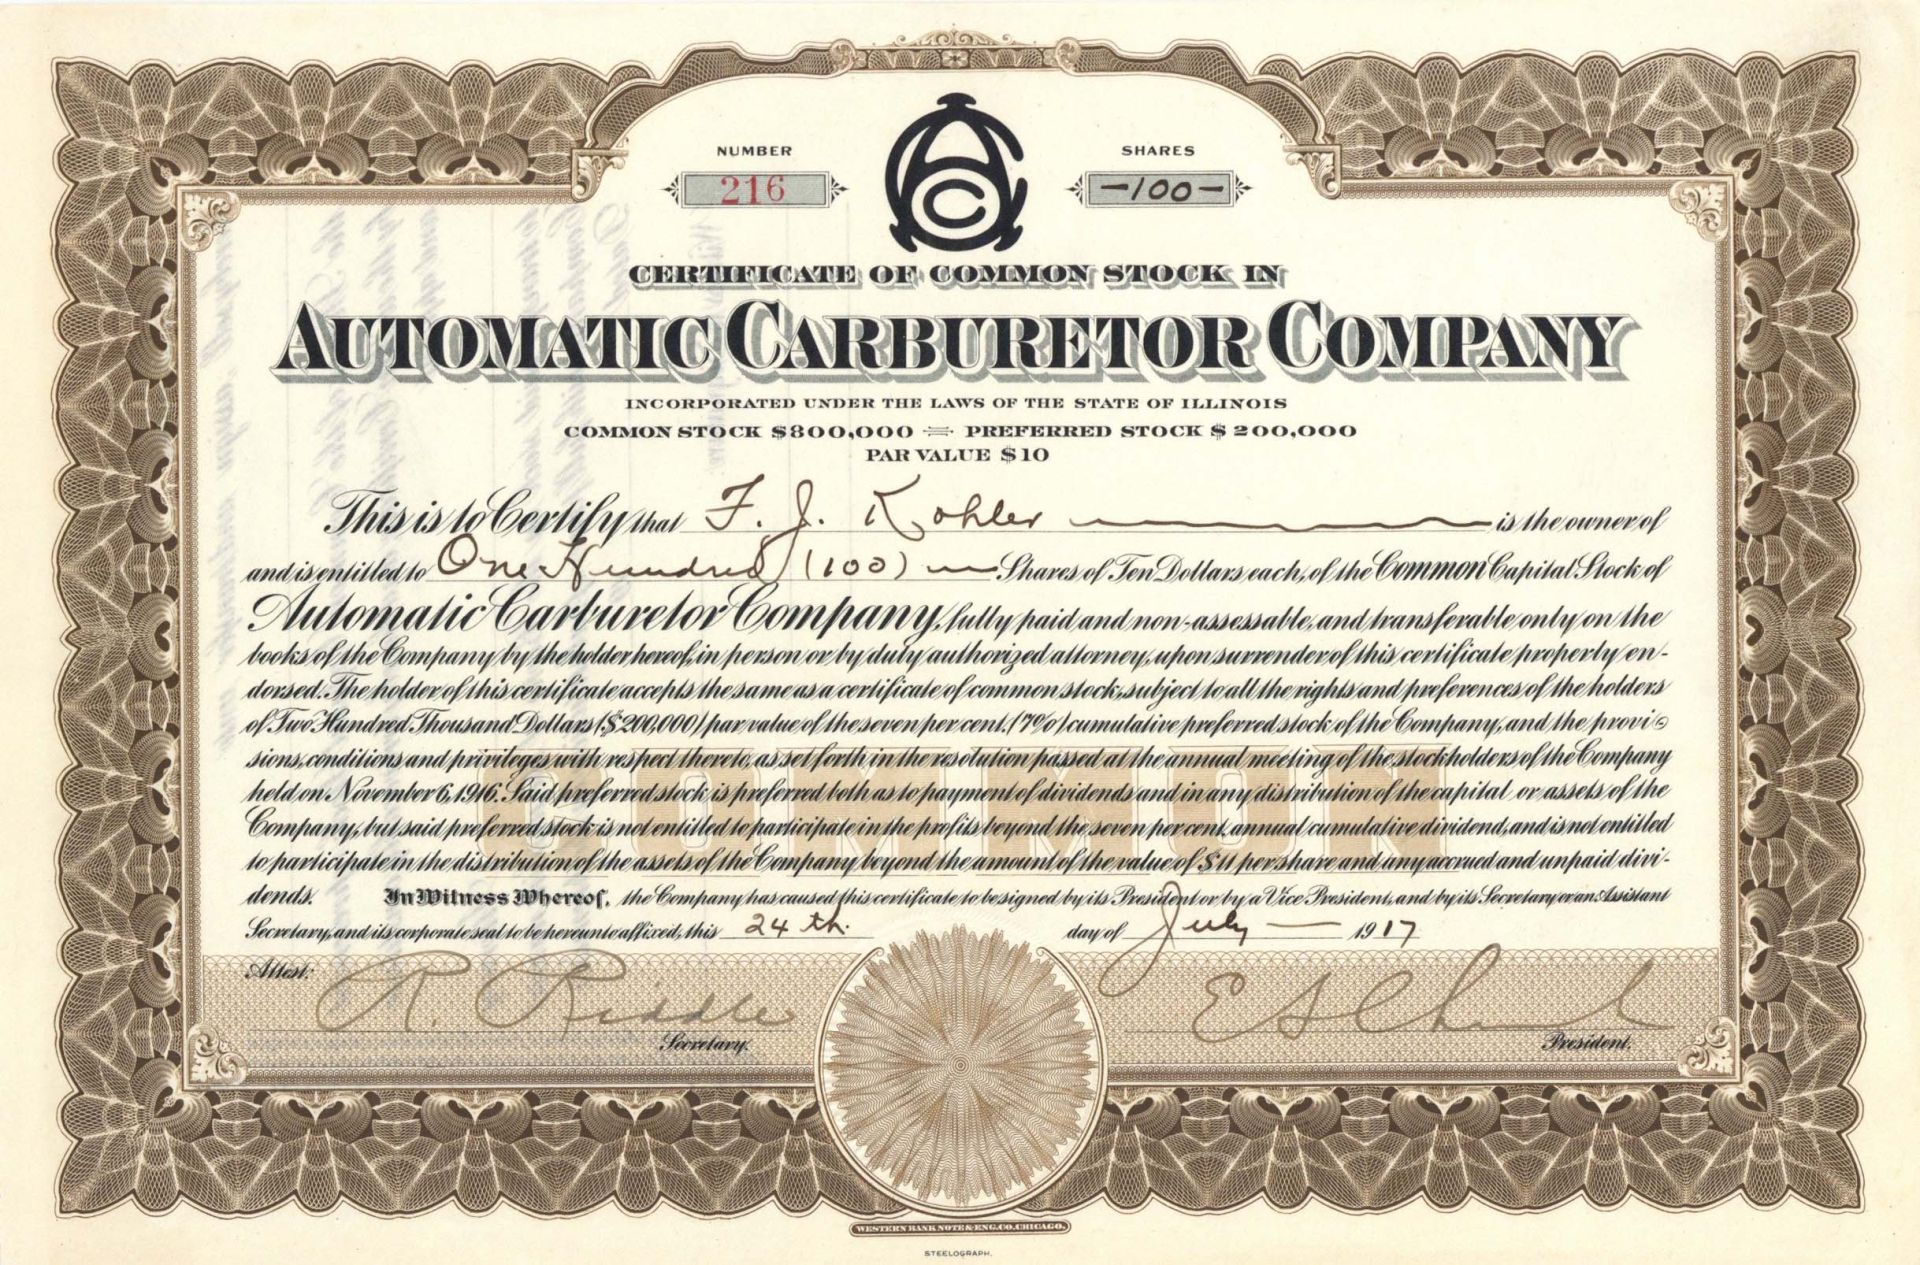 NUMBER
216
SHARES
-100-
CERTIFICATE OF COMMON STOCK IN
AUTOMATIC CARBURETOR COMPANY
INCORPORATED UNDER THE LAWS OF THE STATE OF ILLINOIS
COMMON STOCK $800,000 = PREFERRED STOCK $200,000
PAR VALUE $10
This is to Certify that F. J. Kohler is the owner of
and is entitled to One Hundred (100) Shares of Ten Dollars each, of the Common Capital Stock of
Automatic Carburetor Company, fully paid and non-assessable, and transferable only on the
books of the Company by the holder hereof, in person or by duly authorized attorney, upon surrender of this certificate properly en-
dorsed. The holder of this certificate accepts the same as a certificate of common stock, subject to all the rights and preferences of the holders
of Two Hundred Thousand Dollars ($200,000) par value of the seven per cent. (7%) cumulative preferred stock of the Company, and the provi-
sions, conditions and privileges with respect thereto, as set forth in the resolution passed at the annual meeting of the stockholders of the Company
held on November 6, 1916. Said preferred stock is preferred both as to payment of dividends and in any distribution of the capital or assets of the
Company, but said preferred stock is not entitled to participate in the profits beyond the seven per cent, annual cumulative dividend, and is not entitled
to participate in the distribution of the assets of the Company beyond the amount of the value of $11 per share and any accrued and unpaid divi-
dends. In Witness Whereof, the Company has caused this certificate to be signed by its President or by a Vice President, and by its Secretary or an Assistant
Secretary, and its corporate seal to be hereunto affixed, this 24 th. day of July 1917
COMMON
Attest:
R. Riddle
Secretary.
President.
WESTERN BANK NOTE & ENG. CO. CHICAGO.
STEELOGRAPH.